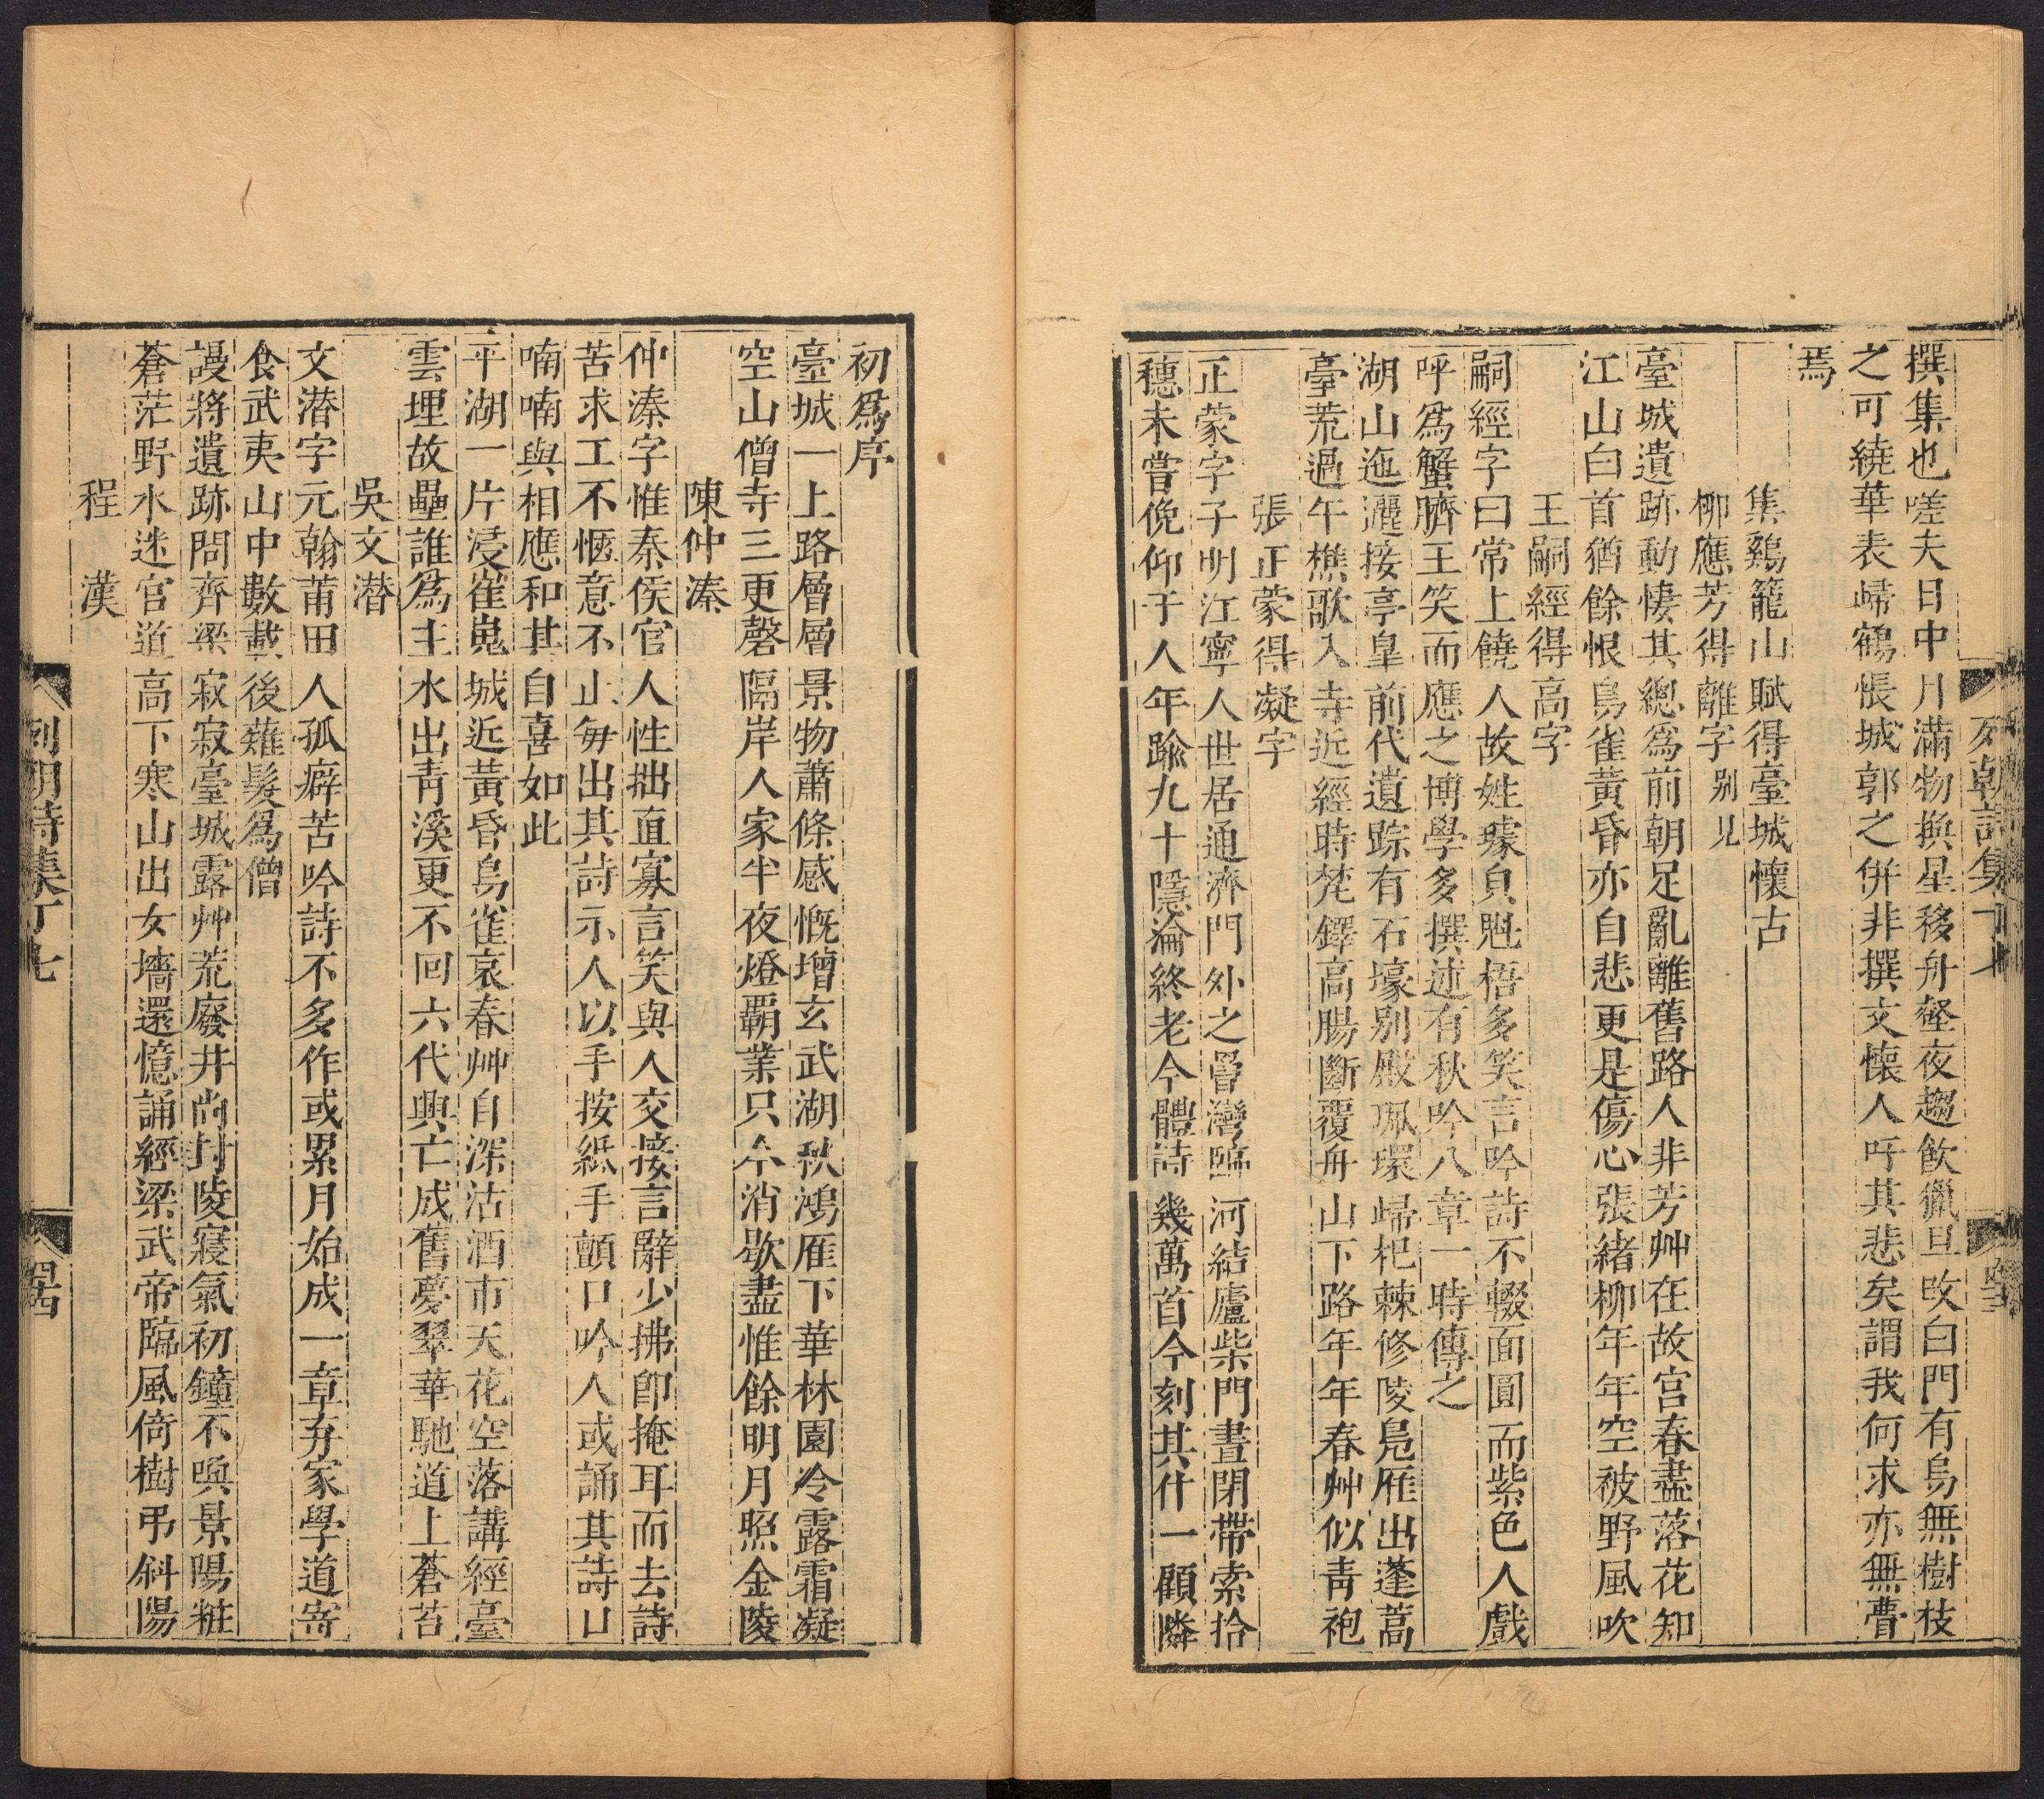 撰集也嗟夫日中月滿物換星移舟壑夜趨飲獵旦改白門有烏無樹枝
之可繞華表歸鶴悵城郭之併非撰文懷人吁其悲矣謂我何求亦無瞢
焉
集鷄籠山賦得臺城懷古
柳應芳得離字別見
臺城遺跡動悽其總爲前朝足亂離舊路人非芳艸在故宮春盡落花知
江山白首猶餘恨鳥雀黃昏亦自悲更是傷心張緒柳年年空被野風吹
王嗣經得高字
嗣經字曰常上饒人故姓璩負魁梧多笑言吟詩不輟面圓而紫色人戲
呼爲蟹臍王笑而應之博學多撰述有秋吟八章一時傳之
湖山迤邐接亭皐前代遺踪有石壕別殿珮環歸杞棘修陵鳬雁出蓬蒿
臺荒過午樵歌入寺近經時梵鐸高腸斷覆舟山下路年年春艸似青袍
張正蒙得凝字
正蒙字子明江寧人世居通濟門外之罾灣臨河結廬柴門晝閉帶索拾
穗未嘗俛仰于人年踰九十隱淪終老今體詩幾萬首今刻其什一顧隣
初爲序
臺城一上路層層景物蕭條感慨增玄武湖秋鴻雁下華林園冷露霜凝
空山僧寺三更磬隔岸人家半夜燈覇業只今消歇盡惟餘明月照金陵
陳仲溱
仲溱字惟秦侯官人性拙直寡言笑與人交接言辭少拂卽掩耳而去詩
苦求工不愜意不止毎出其詩示人以手按紙手顫口吟人或誦其詩口
喃喃與相應和其自喜如此
平湖一片浸崔嵬城近黃昏鳥雀哀春艸自深沽酒市天花空落講經臺
雲埋故壘誰爲主水出青溪更不回六代興亡成舊夢翠華馳道上蒼苔
吳文潛
文潛字元翰莆田人孤癖苦吟詩不多作或累月始成一章弃家學道寄
食武夷山中數載後薙髮爲僧
謾將遺跡問齊梁寂寂臺城露艸荒廢井尚封陵寢氣初鐘不喚景陽粧
蒼茫野水迷官道高下寒山出女墻還憶誦經梁武帝臨風倚樹弔斜陽
程漢
列朝詩集丁七